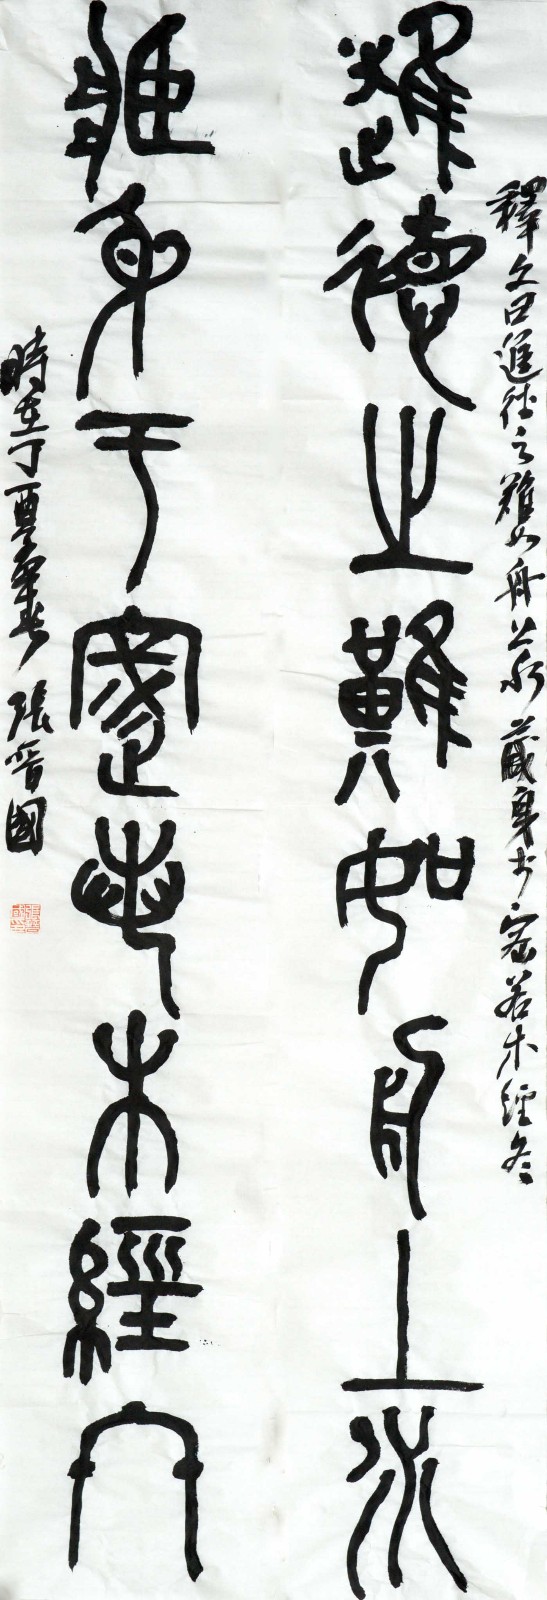 釋文曰進德之難如舟上水藏身於密若木經冬
進德之難如舟上水
藏身于密若木經冬
時在丁酉年春張晉國